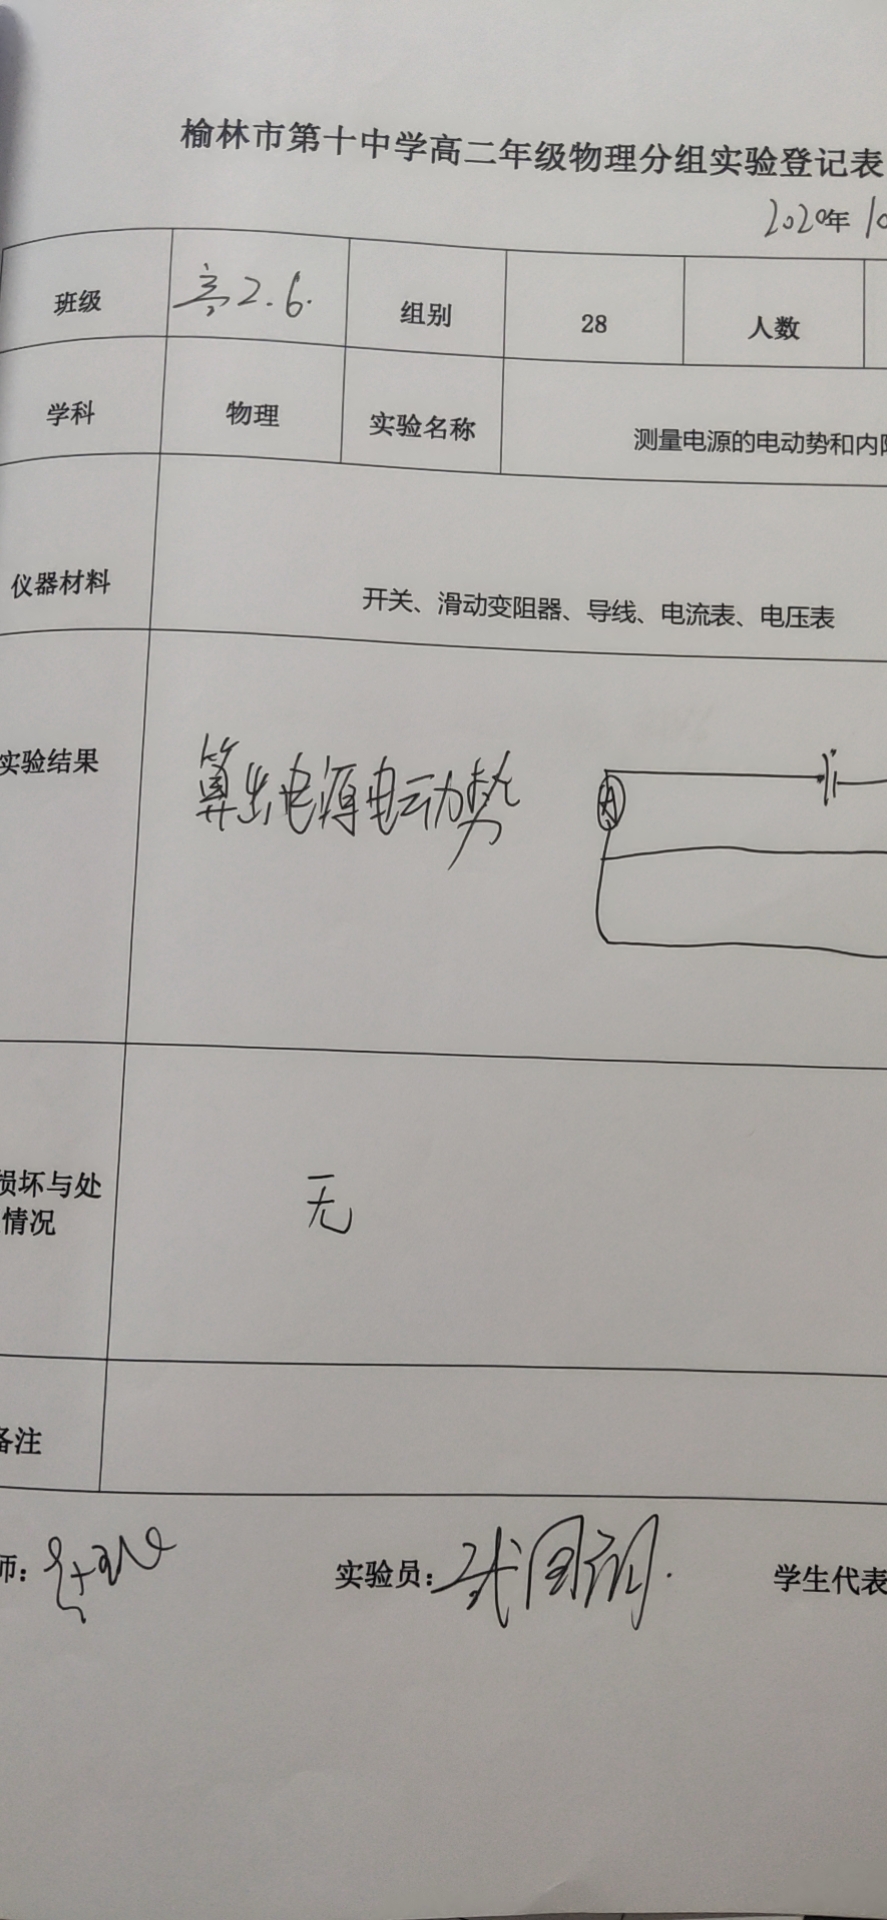 榆林市第十中学高二年级物理分组实验登记表
2020年 10
班级 高2.6. 组别 28 人数
学科 物理 实验名称 测量电源的电动势和内阻
仪器材料 开关、滑动变阻器、导线、电流表、电压表
实验结果 算出电源电动势
A
损坏与处
情况
无
备注
师：
实验员： 学生代表